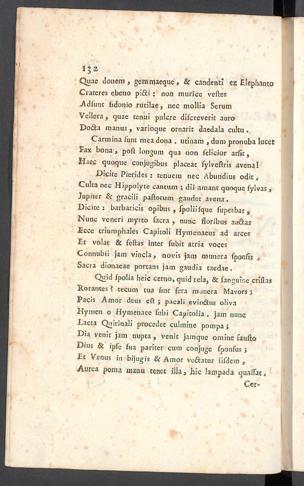 132
Quae donem, gemmaeque, & candenti ex Elephanto
Crateres ebeno picti: non murice vestes
Adsunt sidonio rutilae, nec mollia Serum
Vellera, quae tenui pulcre discreverit auro
Docta manus, varioque ornarit daedala cultu.
Carmina sunt mea dona. utinam, dum pronuba lucet
Fax bona, post longum qua non felicior arsit,
Haec quoque conjugibus placeat sylvestris avena!
Dicite Pierides: tenuem nec Abundius odit,
Culta nec Hippolyte cannam: dii amant quoque sylvas,
Jupiter & gracili pastorum gaudet avena.
Dicite: barbaricis opibus, spoliisque superbas,
Nunc veneri myrto sacra, nunc floribus auctas
Ecce triumphales Capitoli Hymenaeus ad arces
Et volat & festas inter subit atria voces
Connubii jam vincla, novis jam munera sponsis,
Sacra dionaeae portans jam gaudia taedae.
Quid spolia heic cerno, quid tela, & sanguine cristas
Rorantes? tecum tua sint fera munera Mavors;
Pacis Amor deus est; pacali evinctus oliva
Hymen o Hymenaee subi Capitolia. jam nunc
Laeta Quirinali procedet culmine pompa;
Dia venit jam nupta, venit jamque omine fausto
Dius & ipse sua pariter cum conjuge sponsus;
Et Venus in bijugis & Amor vectatur iisdem,
Aurea poma manu tenet illa, hic lampada quassat.
Cer-